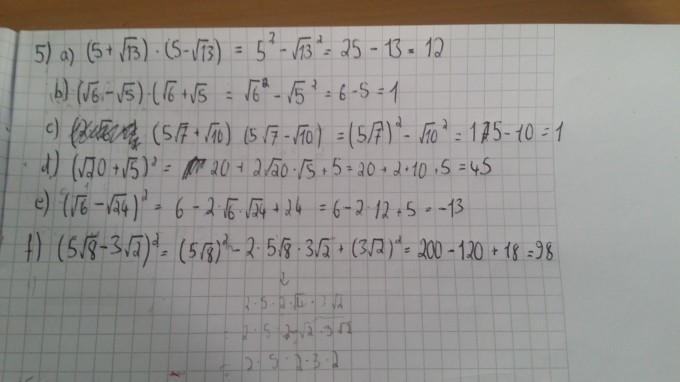 5) a) (5+√13)·(5-√13) = 5² - √13² = 25 - 13 = 12
b) (√6 - √5)·(√6 + √5 = √6² - √5² = 6-5 = 1
c) (5√7 + √10) (5√7 - √10) = (5√7)² - √10² = 175-10 = 1
d) (√20 + √5)² = 20 + 2√20·√5 + 5 = 20 + 2·10 + 5 = 45
e) (√6 - √24)² = 6 - 2·√6·√24 + 24 = 6 - 2·12 + 5 = -13
f) (5√8 - 3√2)² = (5√8)² - 2·5√8·3√2 + (3√2)² = 200 - 120 + 18 = 98
2·5·2·√2·3√2
2·5·2·3·2